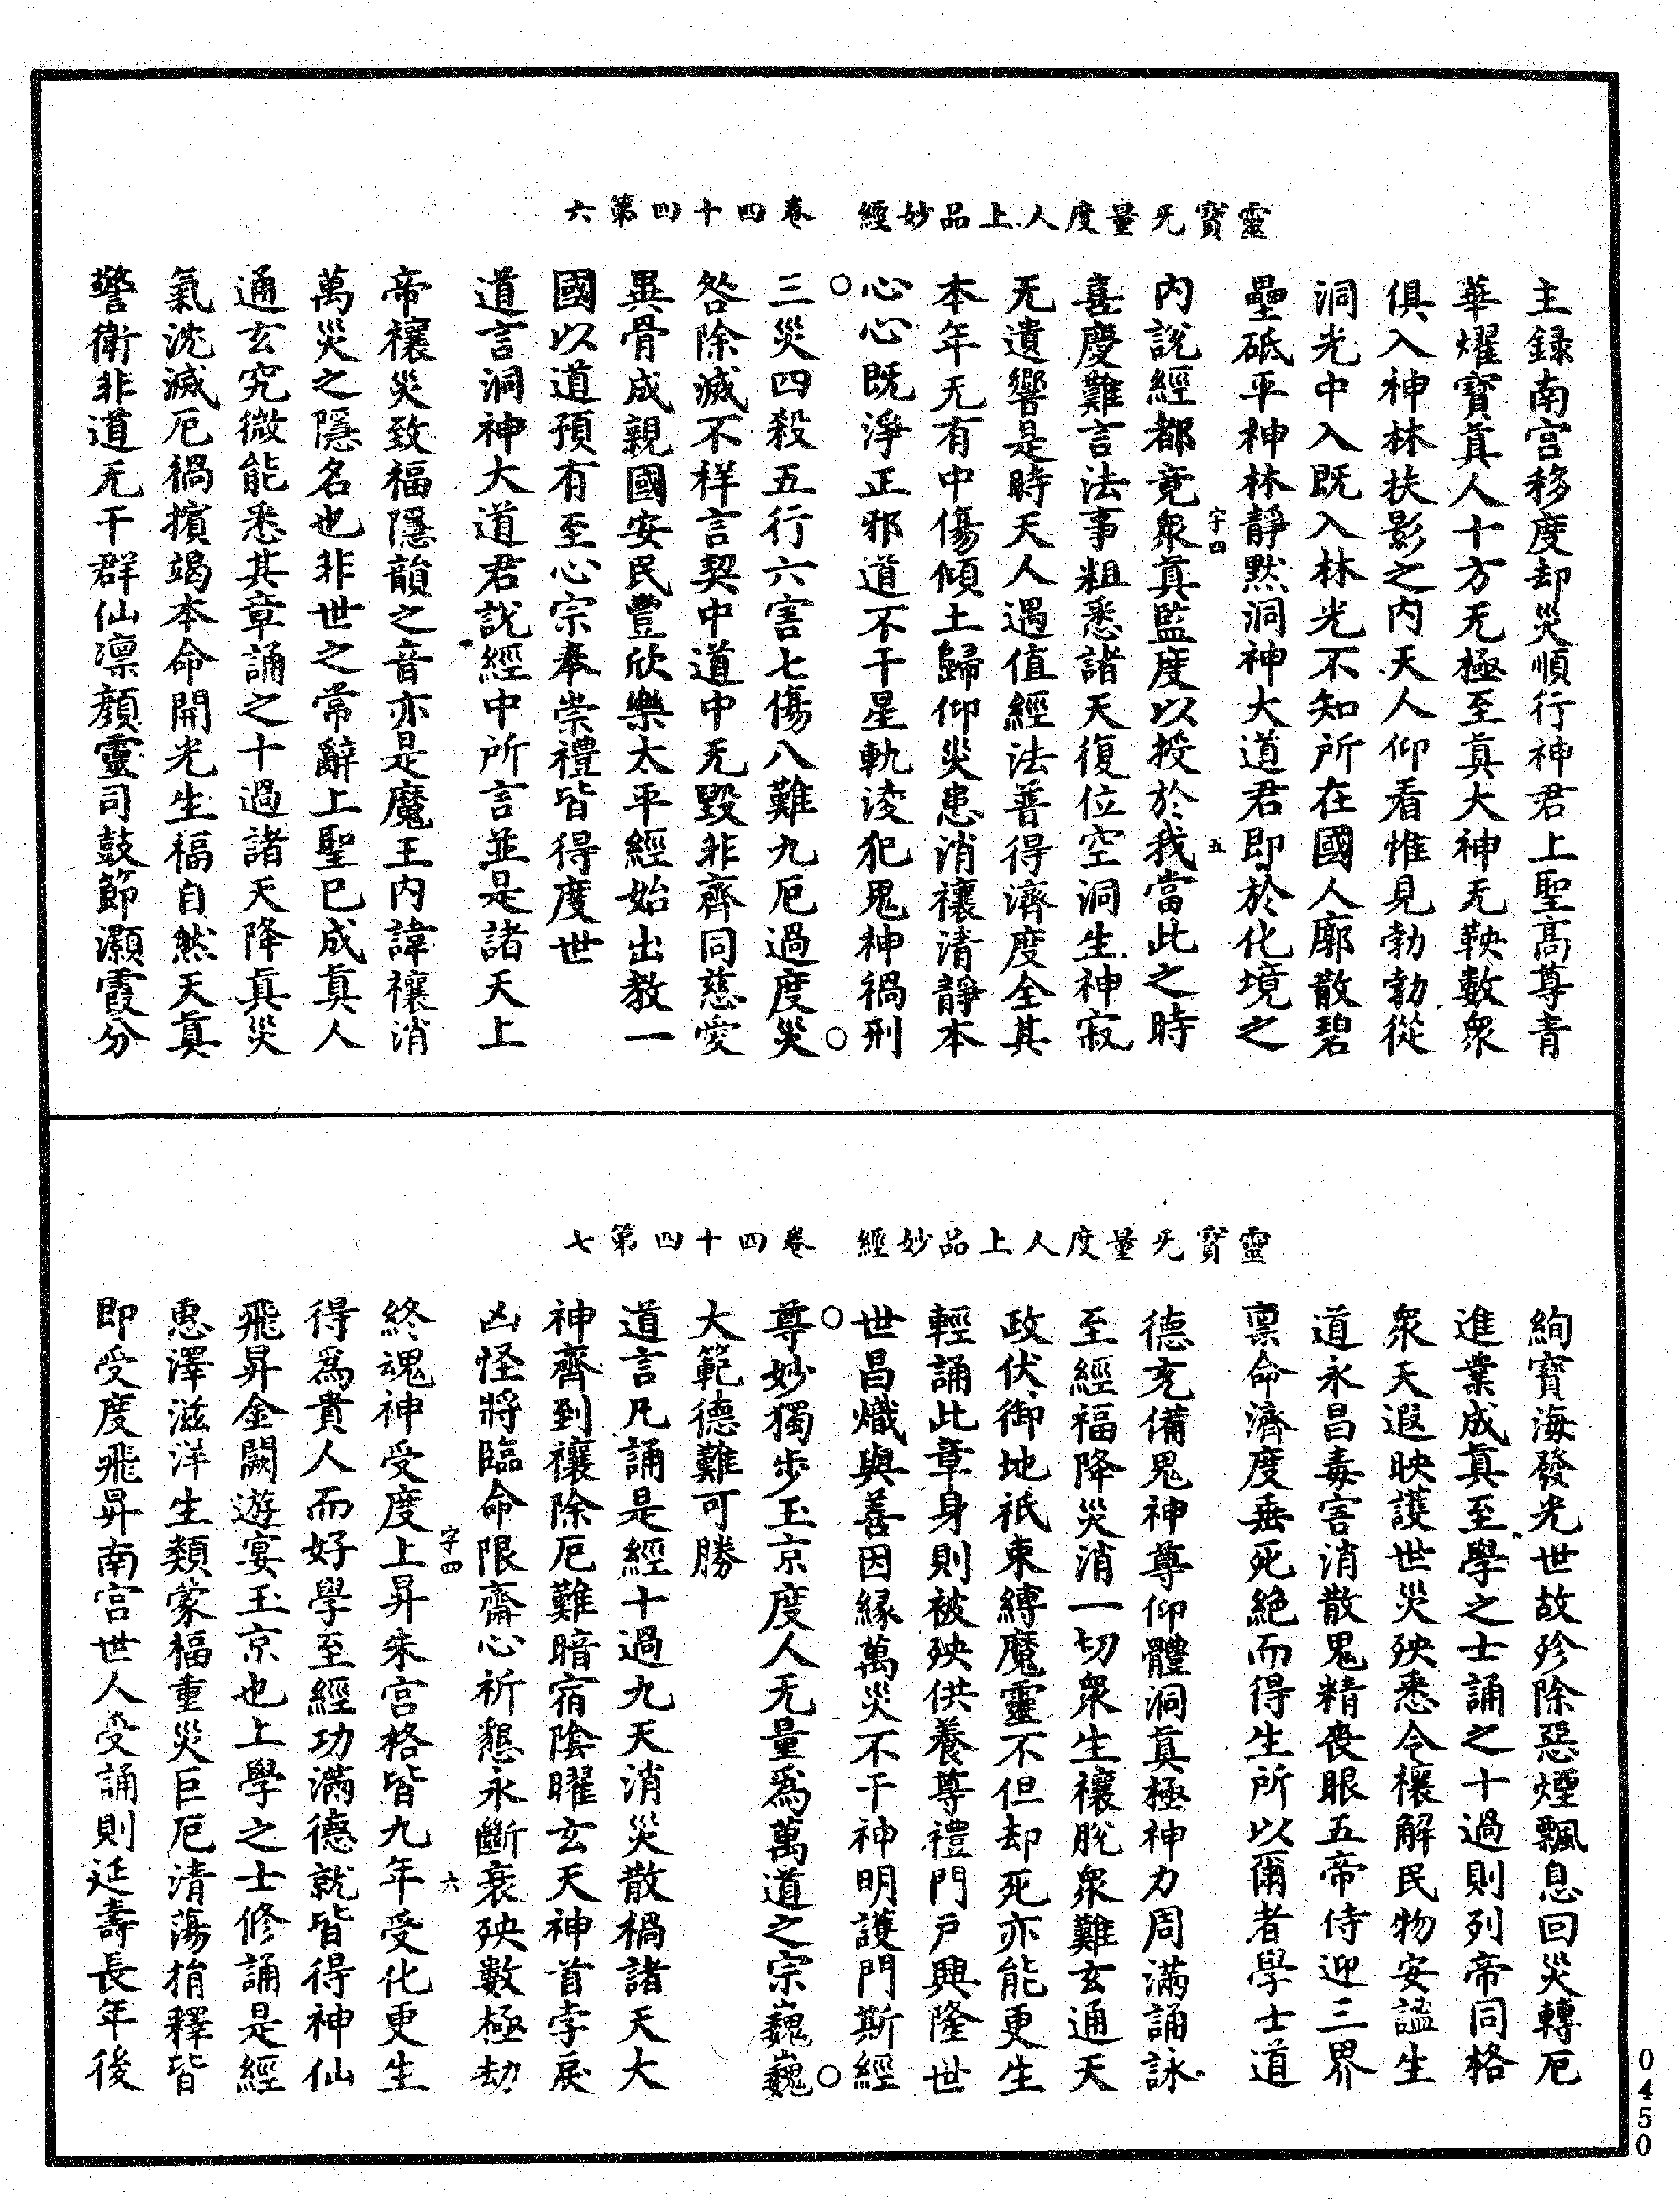 靈寶无量度人上品妙經　卷四十四第六
主録南宫移度却災順行神君上聖高尊青
華燿寶真人十方无極至真大神无鞅數衆
俱入神林扶影之内天人仰看惟見勃勃從
洞光中入既入林光不知所在國人廓散碧
壘砥平神林靜默洞神大道君即於化境之
字四　五
内說經都竟衆真監度以授於我當此之時
喜慶難言法事粗悉諸天復位空洞生神寂
无遺響是時天人遇值經法普得濟度全其
本年无有中傷傾土歸仰災患消禳清靜本
心心既淨正邪道不干星軌淩犯鬼神禍刑
三災四殺五行六害七傷八難九厄過度災
咎除滅不祥言契中道中无毀非齊同慈愛
異骨成親國安民豐欣樂太平經始出教一
國以道預有至心宗奉崇禮皆得度世
道言洞神大道君說經中所言並是諸天上
帝禳災致福隱韻之音亦是魔王内諱禳消
萬災之隱名也非世之常辭上聖已成真人
通玄究微能悉其章誦之十過諸天降真災
氣沈滅厄禍擯竭本命開光生福自然天真
警衛非道无干群仙凛顔靈司鼓節灝霞分
靈寶无量度人上品妙經　卷四十四第七
絢寶海發光世故殄除惡煙飄息回災轉厄
進業成真至學之士誦之十過則列帝同格
衆天遐映護世災殃悉令禳解民物安謐生
道永昌毒害消散鬼精喪眼五帝侍迎三界
禀命濟度垂死絶而得生所以爾者學士道
德充備鬼神尊仰體洞真極神力周滿誦詠
至經福降災消一切衆生禳脫衆難玄通天
政伏御地祇束縛魔靈不但却死亦能更生
輕誦此章身則被殃供養尊禮門戶興隆世
世昌熾與善因縁萬災不干神明護門斯經
尊妙獨步玉京度人无量爲萬道之宗巍巍
大範德難可勝
道言凡誦是經十過九天消災散禍諸天大
神齊到禳除厄難暗宿陰曜玄天神首孛戾
凶怪將臨命限齋心祈懇永斷衰殃數極劫
字四　六
終魂神受度上昇朱宫格皆九年受化更生
得爲貴人而好學至經功滿德就皆得神仙
飛昇金闕遊宴玉京也上學之士修誦是經
惠澤滋洋生類蒙福重災巨厄清蕩捐釋皆
即受度飛昇南宫世人受誦則延壽長年後
0450